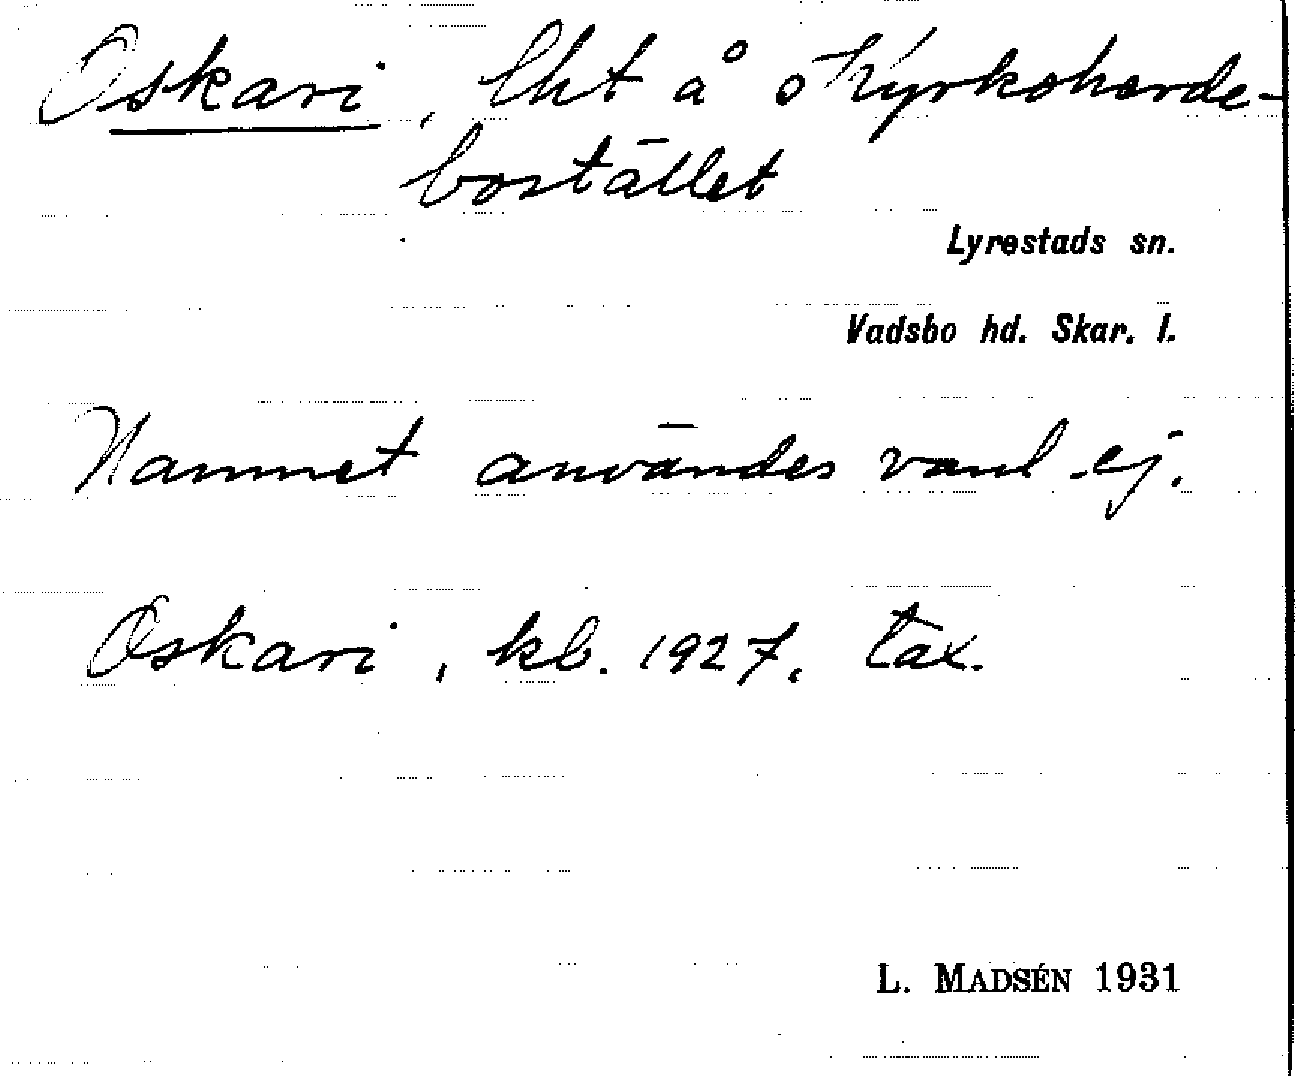 Oskari, lht å o Kyrkoherde-
bostället
Lyrestads sn.
Vadsbo hd. Skar. l.
Namnet användes vanl ej.
Oskari, kb. 1927. tax.
L. MADSÉN 1931